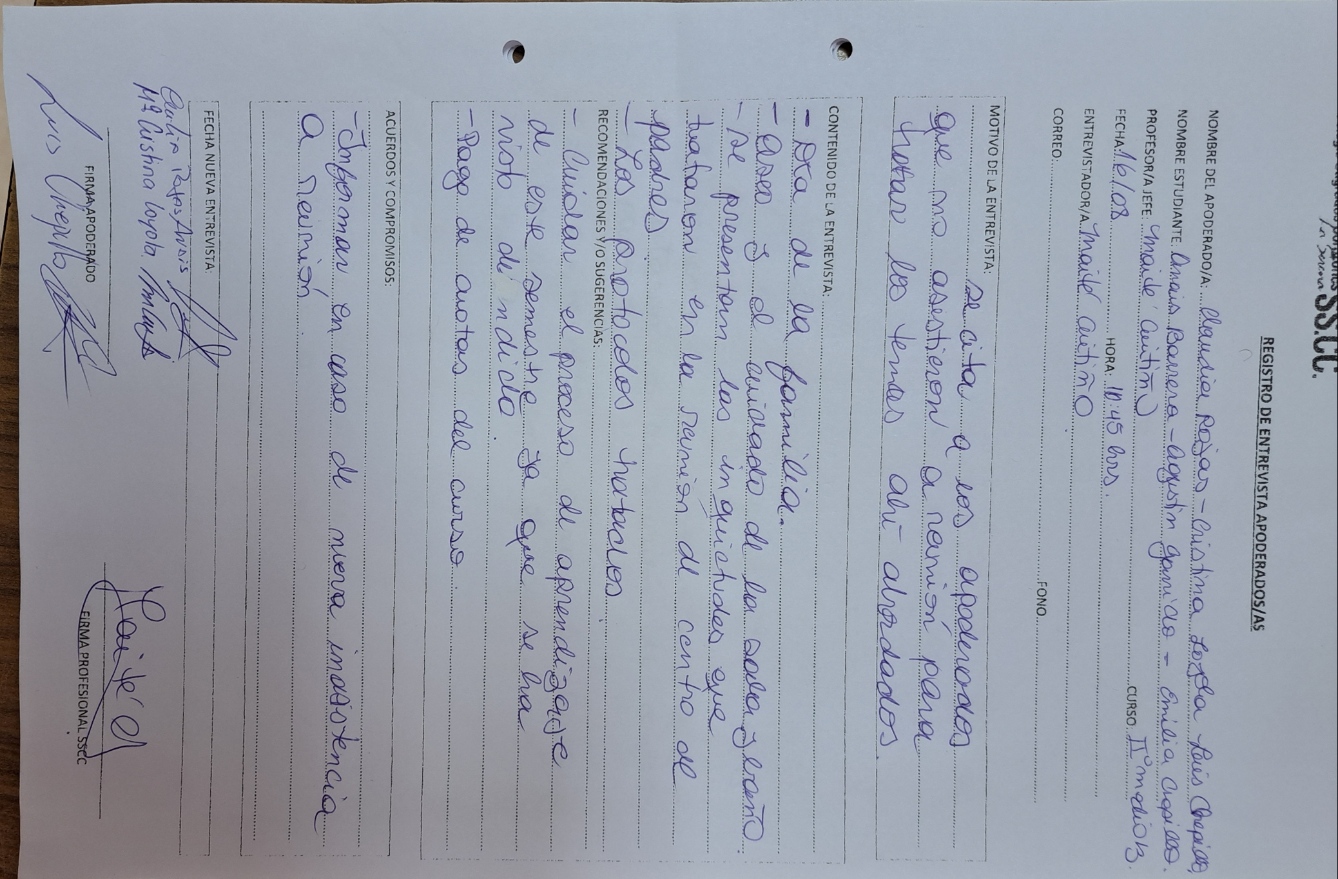 SS.CC.
REGISTRO DE ENTREVISTA APODERADOS/AS
NOMBRE DEL APODERADO/A: Claudia Rojas - Cristina Loyola - Luis Chepillo,
NOMBRE ESTUDIANTE: Anais Barrera - Agustín Garrido - Emilia Chepillo.
PROFESOR/A JEFE: Maité Cuitiño CURSO: II° medio B.
FECHA: 16/08 HORA: 10:45 hrs.
ENTREVISTADOR/A: Maité Cuitiño
CORREO: FONO
MOTIVO DE LA ENTREVISTA:
Se cita a los apoderados
que no asistieron a reunión para
tratar los temas ahí abordados.
CONTENIDO DE LA ENTREVISTA:
- Día de la familia.
- Aseo y el cuidado de la sala y baño.
- Se presentarn las inquietudes que
trataron en la reunión de centro de
padres
- Los protocolos tratados.
RECOMENDACIONES Y/O SUGERENCIAS:
- Cuidar el proceso de aprendizaje
de este semestre ya que se ha
visto dividido.
- Pago de cuotas del curso.
ACUERDOS Y COMPROMISOS:
- Informar en caso de nueva inasistencia
a reunión.
FECHA NUEVA ENTREVISTA:
Mª Cristina Loyola
Luis Chepillo
FIRMA APODERADO
Maité C
FIRMA PROFESIONAL SSCC